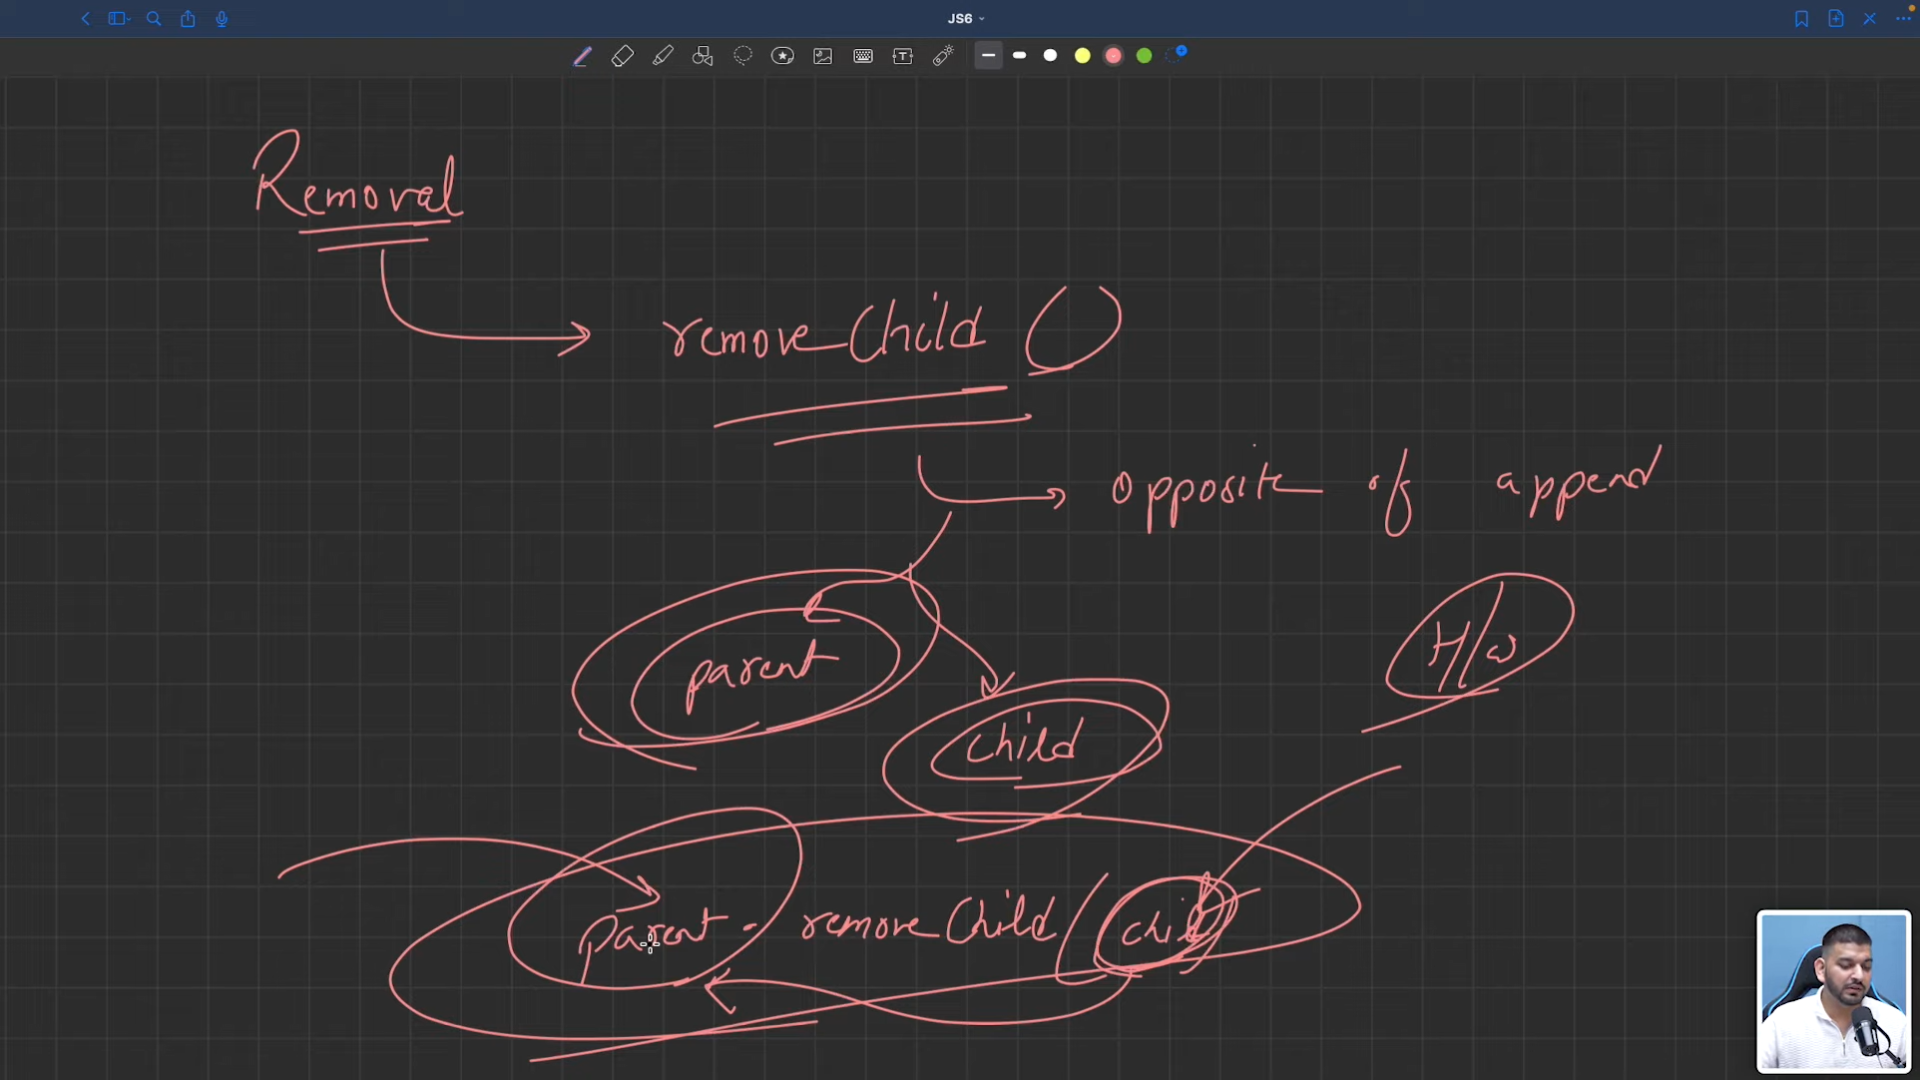 JS6
Removal
removeChild ()
opposite of append
parent
H/w
child
parent. removeChild (child)